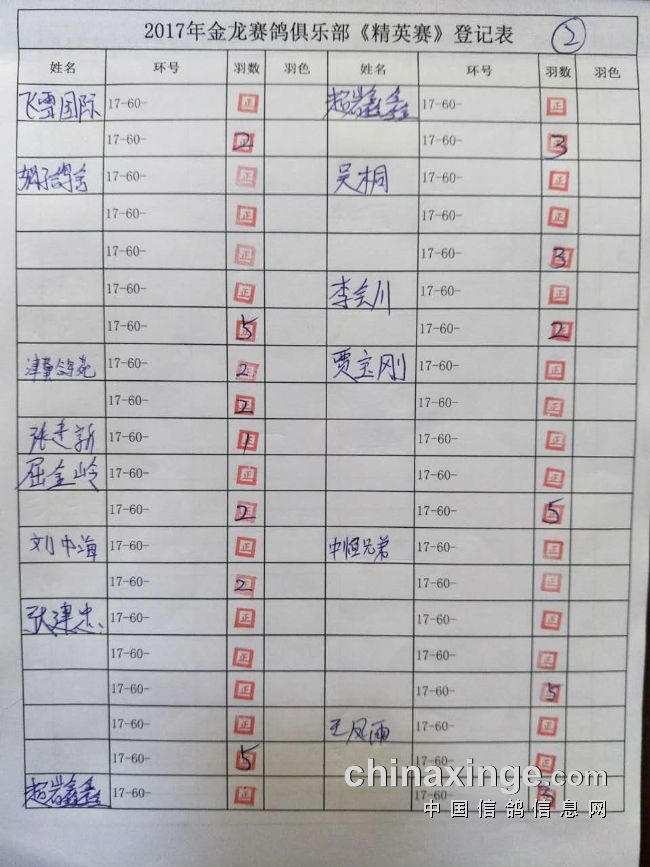 2017年金龙赛鸽俱乐部《精英赛》登记表 2
姓名 环号 羽数 羽色 姓名 环号 羽数 羽色
飞雪国际 17-60- 正 赵岩鑫鑫 17-60- 正
17-60- 正 2 17-60- 正 3
17-60- 正 吴桐 17-60- 正
17-60- 正 17-60- 正
17-60- 正 17-60- 正 3
17-60- 正 李会川 17-60- 正
17-60- 正 5 17-60- 正 2
津冀鸽苑 17-60- 正 2 贾宝刚 17-60- 正
17-60- 正 2 17-60- 正
张建新 17-60- 正 1 17-60- 正
屈金岭 17-60- 正 17-60- 正
17-60- 正 2 17-60- 正 5
刘中海 17-60- 正 中恒兄弟 17-60- 正
17-60- 正 2 17-60- 正
张建忠 17-60- 正 17-60- 正
17-60- 正 17-60- 正
17-60- 正 17-60- 正 5
17-60- 正 王风雨 17-60- 正
17-60- 正 5 17-60- 正
赵岩鑫鑫 17-60- 正 17-60- 正 3
chinaxinge.com
中国信鸽信息网